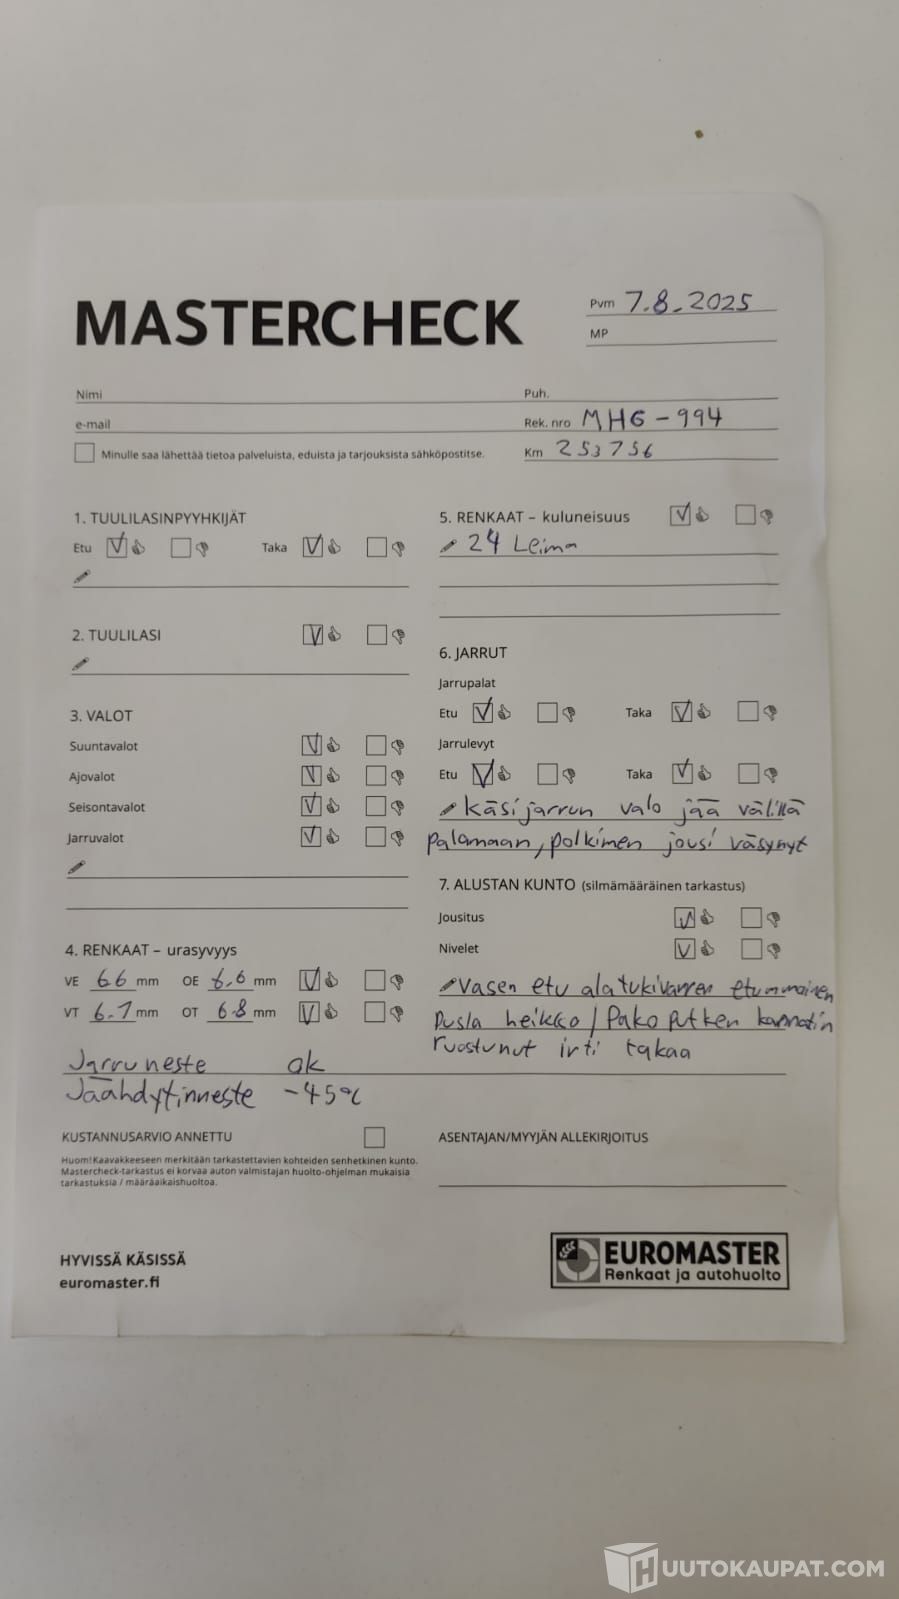 MASTERCHECK
Pvm 7.8.2025
MP
Nimi
Puh.
e-mail
Rek. nro MHG-994
Minulle saa lähettää tietoa palveluista, eduista ja tarjouksista sähköpostitse.
Km 253756
1. TUULILASINPYYHKIJÄT
Etu V Taka V
2. TUULILASI V
3. VALOT
Suuntavalot V
Ajovalot V
Seisontavalot V
Jarruvalot V
4. RENKAAT – urasyvyys
VE 6.6 mm OE 6,6 mm V
VT 6.7 mm OT 6.8 mm V
Jarruneste ok
Jäähdytinneste -45°C
5. RENKAAT – kuluneisuus V
24 Leima
6. JARRUT
Jarrupalat
Etu V Taka V
Jarrulevyt
Etu V Taka V
Käsijarrun valo jää välillä
palamaan, polkimen jousi väsynyt
7. ALUSTAN KUNTO (silmämääräinen tarkastus)
Jousitus V
Nivelet V
Vasen etu alatukivarren etummainen
Pusla heikko / Pakoputken kannatin
ruostunut irti takaa
KUSTANNUSARVIO ANNETTU
Huom! Kaavakkeeseen merkitään tarkastettavien kohteiden senhetkinen kunto.
Mastercheck-tarkastus ei korvaa auton valmistajan huolto-ohjelman mukaisia
tarkastuksia / määräaikaishuoltoa.
ASENTAJAN/MYYJÄN ALLEKIRJOITUS
HYVISSÄ KÄSISSÄ
euromaster.fi
EUROMASTER
Renkaat ja autohuolto
HUUTOKAUPAT.COM